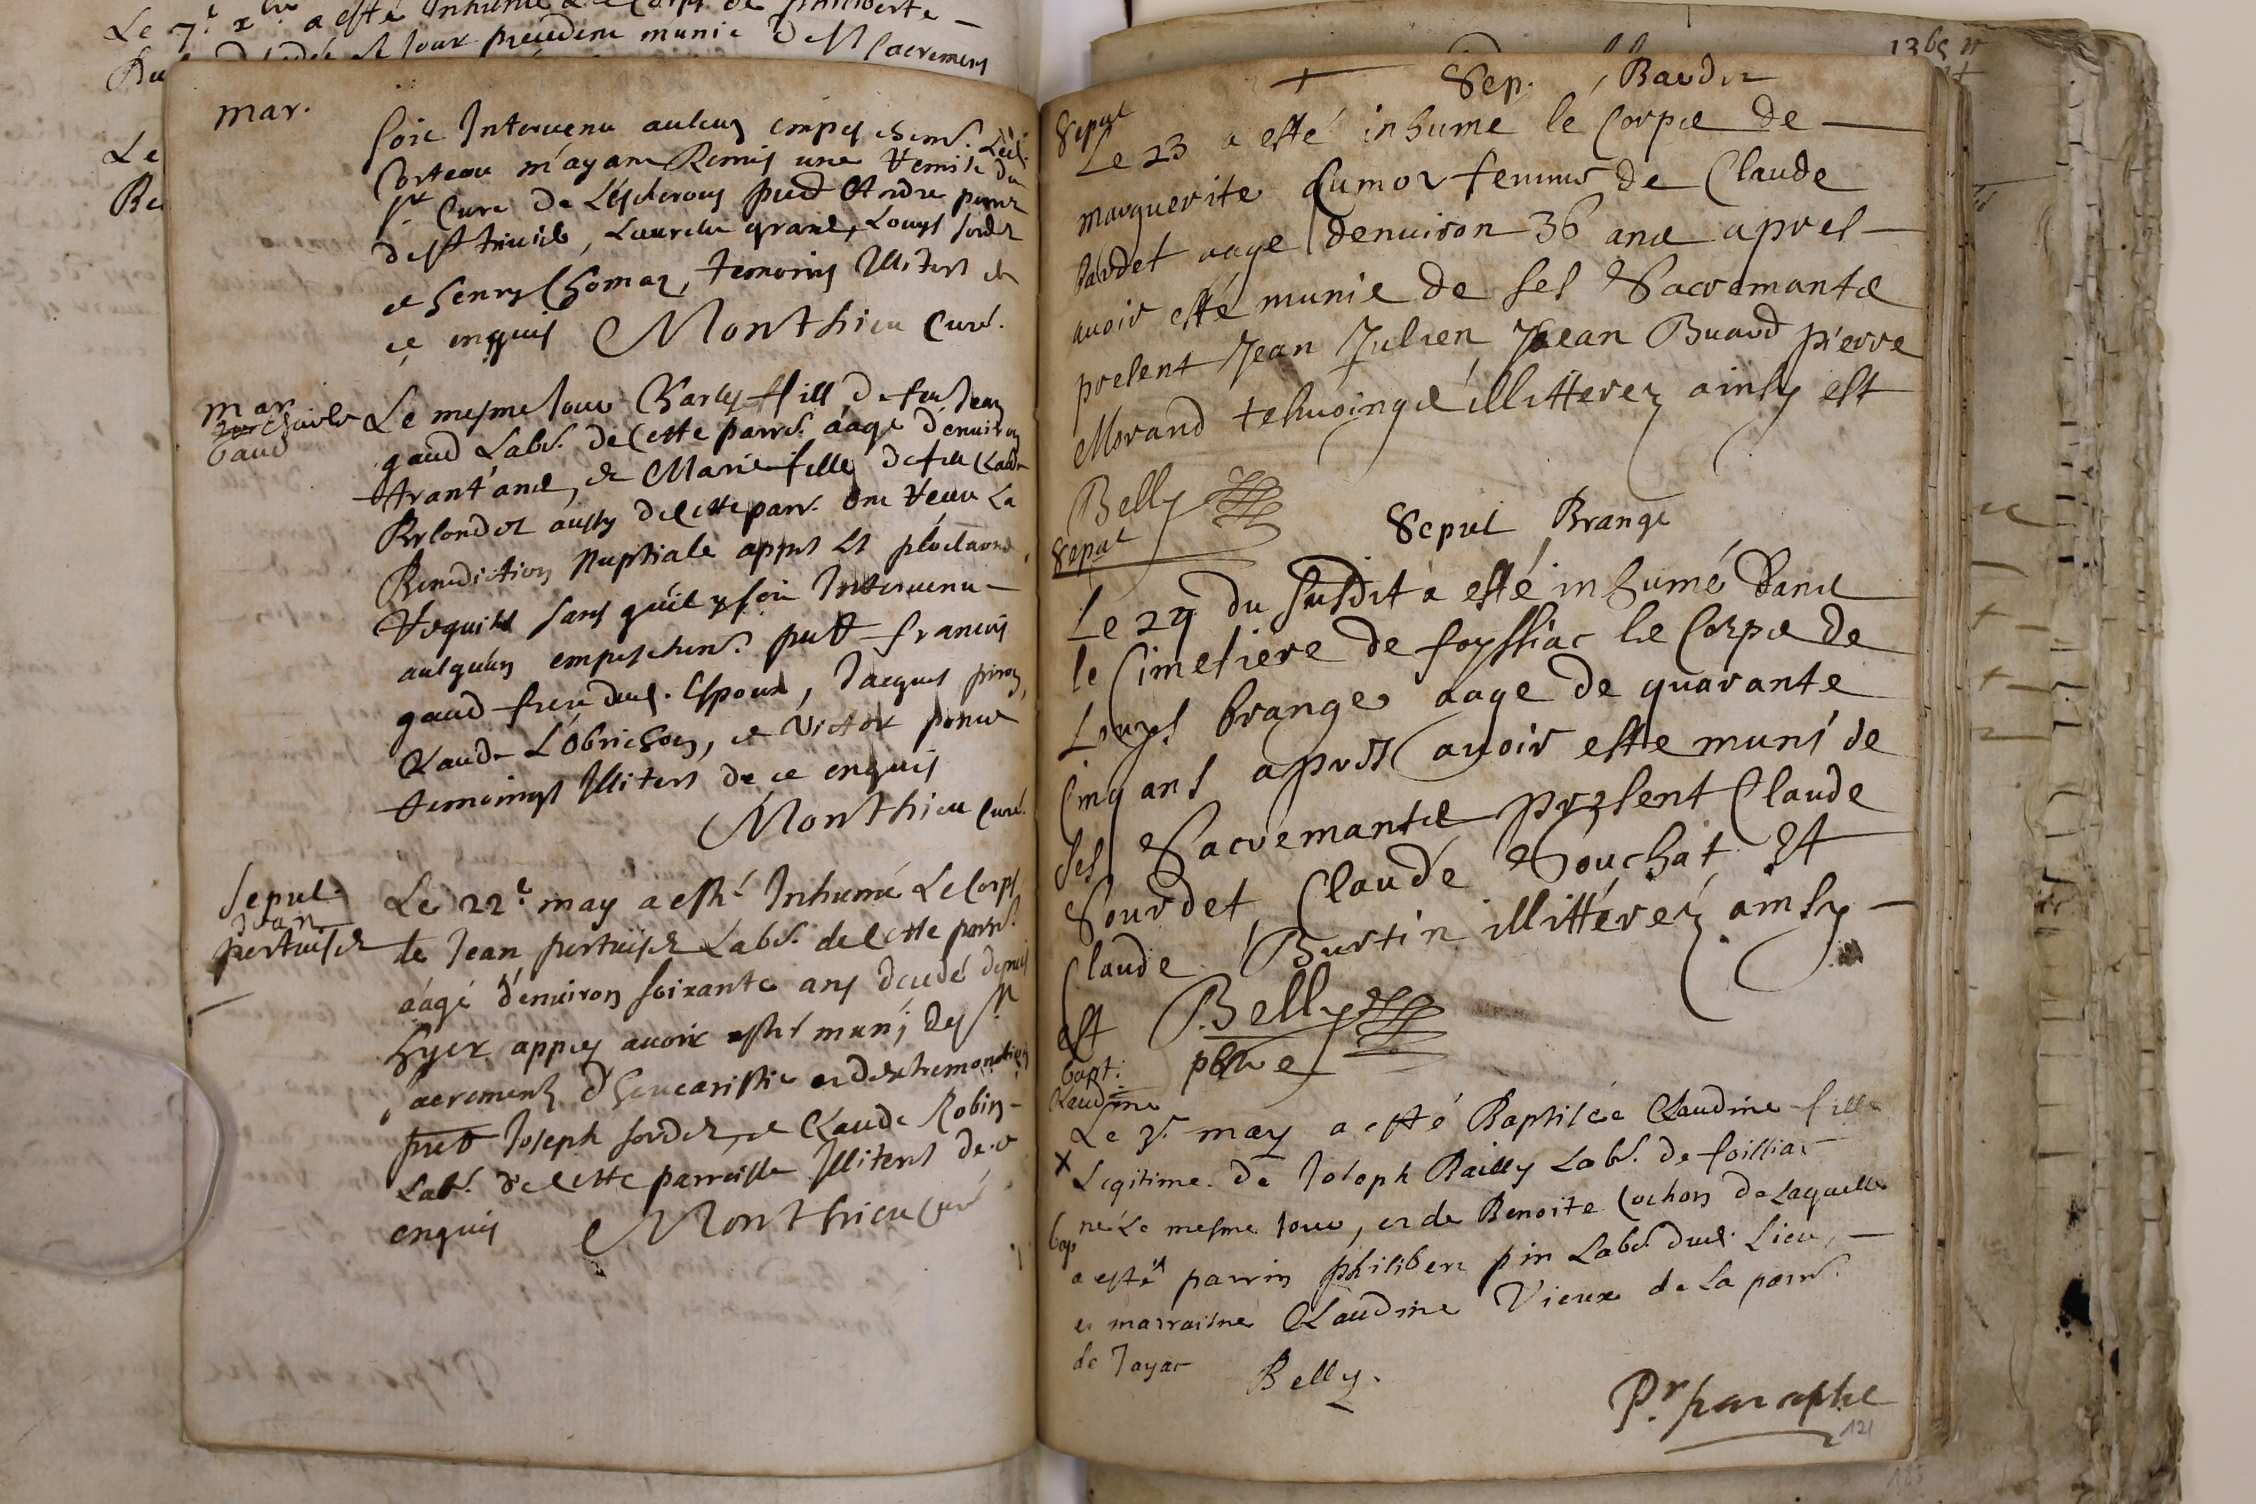 Le 7.e xbre a esté Inhumé Le Corps de philiberte
jour precedent munie des Sacrements
Le
mar.
soit Intervenu aulcun empeschemt. Led.
Corteou m'ayant Remis une Remise du
sr Curé de Lescheroux pnt Andre
de St trivier, Laurent grand, Louys sordet
et henry Chomaz, temoins Illiters de
ce enquis Monthieu Curé.
mar
Charles
Gaud
Le mesme Jour Charles fils de feu Jean
gaud Labr. de Cette parrs. aagé d'environ
trant'ans, et Marie fille de feu Claude
Rolondet aussy de Cette parr. ont Receu La
Benediction Nuptiale apprès Les
Requises sans qu'il y soit Intervenu
aulqu'un empeschemt. pnt francois
gaud frere dud. Espoux, Jacques piron,
Claude L'Obrichon, et Victor
temoings Illiters de ce enquis
Monthieu Curé.
Sepul.
Jean
pertuiset
Le 22.e may a esté Inhumé Le Corps
de Jean pertuiset Labr. de Cette parrs.
aagé d'environ soixante ans decedé depuis
hyer apprès avoir esté muni des Sts
sacrements d'heucaristie et d'extremonction
pnt Joseph sordet, et Claude Robin
Labr. de Cette parroisse Illiters de ce
enquis Monthieu Curé
1365
+ Sep. Baudet
Sepul
Le 23 a esté inhumé le Corps de
marguerite Cumor femme de Claude
baudet aage denuiron 36 ans apres
auoir esté munie de ses Sacremants
present Jean Julien Jean Buard pierre
Morand tesmoings illitterez ainsy est
Belly
Sepul
Sepul Brange
Le 29 du susdit a esté inhumé dans
le Cimetiere de foyssiac le Corps de
Louys brange aage de quarante
Cinq ans apres auoir esté muni de
ses Sacremants present Claude
Sourdet, Claude Souchat Et
Claude Burtin illitterez ainsy
est Belly
pbtre
bapt:
Claudine
Le 3e. may a esté Baptisée Claudine fille
X Legitime de Joseph Bailly Labr. de foissiac
bap née Le mesme Jour, et de Benoite Cochon de Laquelle
a esté parrin philibert pin Labr. dud. Lieu,
et marraine Claudine Vieux de La parrs.
de Jayac Belly.
Pr. paraphe
121